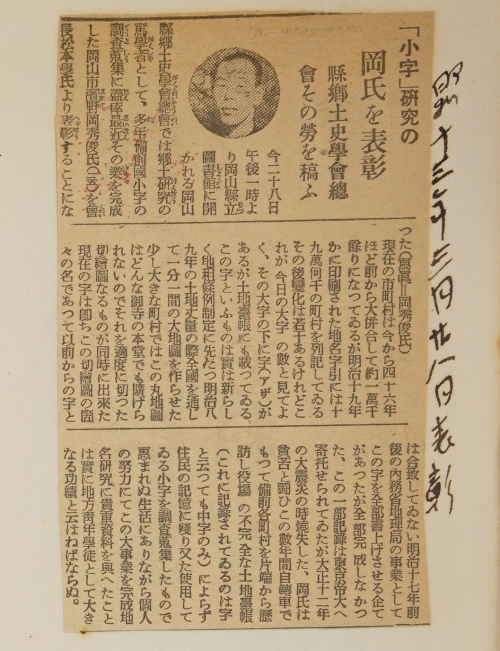 「小字」研究の
岡氏を表彰
縣鄕土史學會總
會その勞を犒ふ
今二十八日
午後一時よ
り岡山縣立
圖書館に開
かれる岡山
縣鄕土史學會總會では鄕土硏究の
篤學者として、多年備前國小字の
調査蒐集に盡瘁最近その業を完成
した岡山市濱野岡秀俊氏(三〇)を會
長松本學氏より表彰することにな
つた(寫眞=岡秀俊氏)
現在の市町村は今から四十六年
ほど前から大倂合して約一萬千
餘りになつてゐるが明治十九年
かに印刷された地名字引には十
九萬何千の町村を列記してゐる
その後變化は若干あるけれどこ
れが今日の大字の數と見てよ
く、その大字の下に字(アザ)が
あるが土地臺帳にも載つてゐる
この字といふものは實は新らし
く地租條例制定に先だつ明治八
九年の土地丈量の際全國を通じ
て一分一間の大地圖を作らせた
少し大きな町村ではこの丸地圖
はどんな御寺の本堂でも擴げら
れないのでそれを適度に切つた
切繪圖なるものが同時に出來た
現在の字は卽ちこの切繪圖の箇
々の名であつて以前からの字と
は合致してゐない明治十七年前
後の內務省地理局の事業として
この字を全部書上げさせる企て
があつたが全部完成しなかつ
た、この一部記錄は東京帝大へ
寄托せられてゐたが大正十二年
の大震災の時燒失した、岡氏は
貧苦と鬪のこの數年間自轉車で
もつて備前各町村を片端から歷
訪し役場の不完全な土地臺帳
(これに記錄されてゐるのは字
と云つても中字のみ)によらず
住民の記憶に殘り又た使用して
ゐる小字を調査蒐集したもので
惠まれぬ生活にありながら個人
の努力にてこの大事業を完成地
名硏究に貴重資料を與へたこと
は實に地方靑年學徒として大き
なる功績と云はねばならぬ。
昭十三年三月廿八日表彰